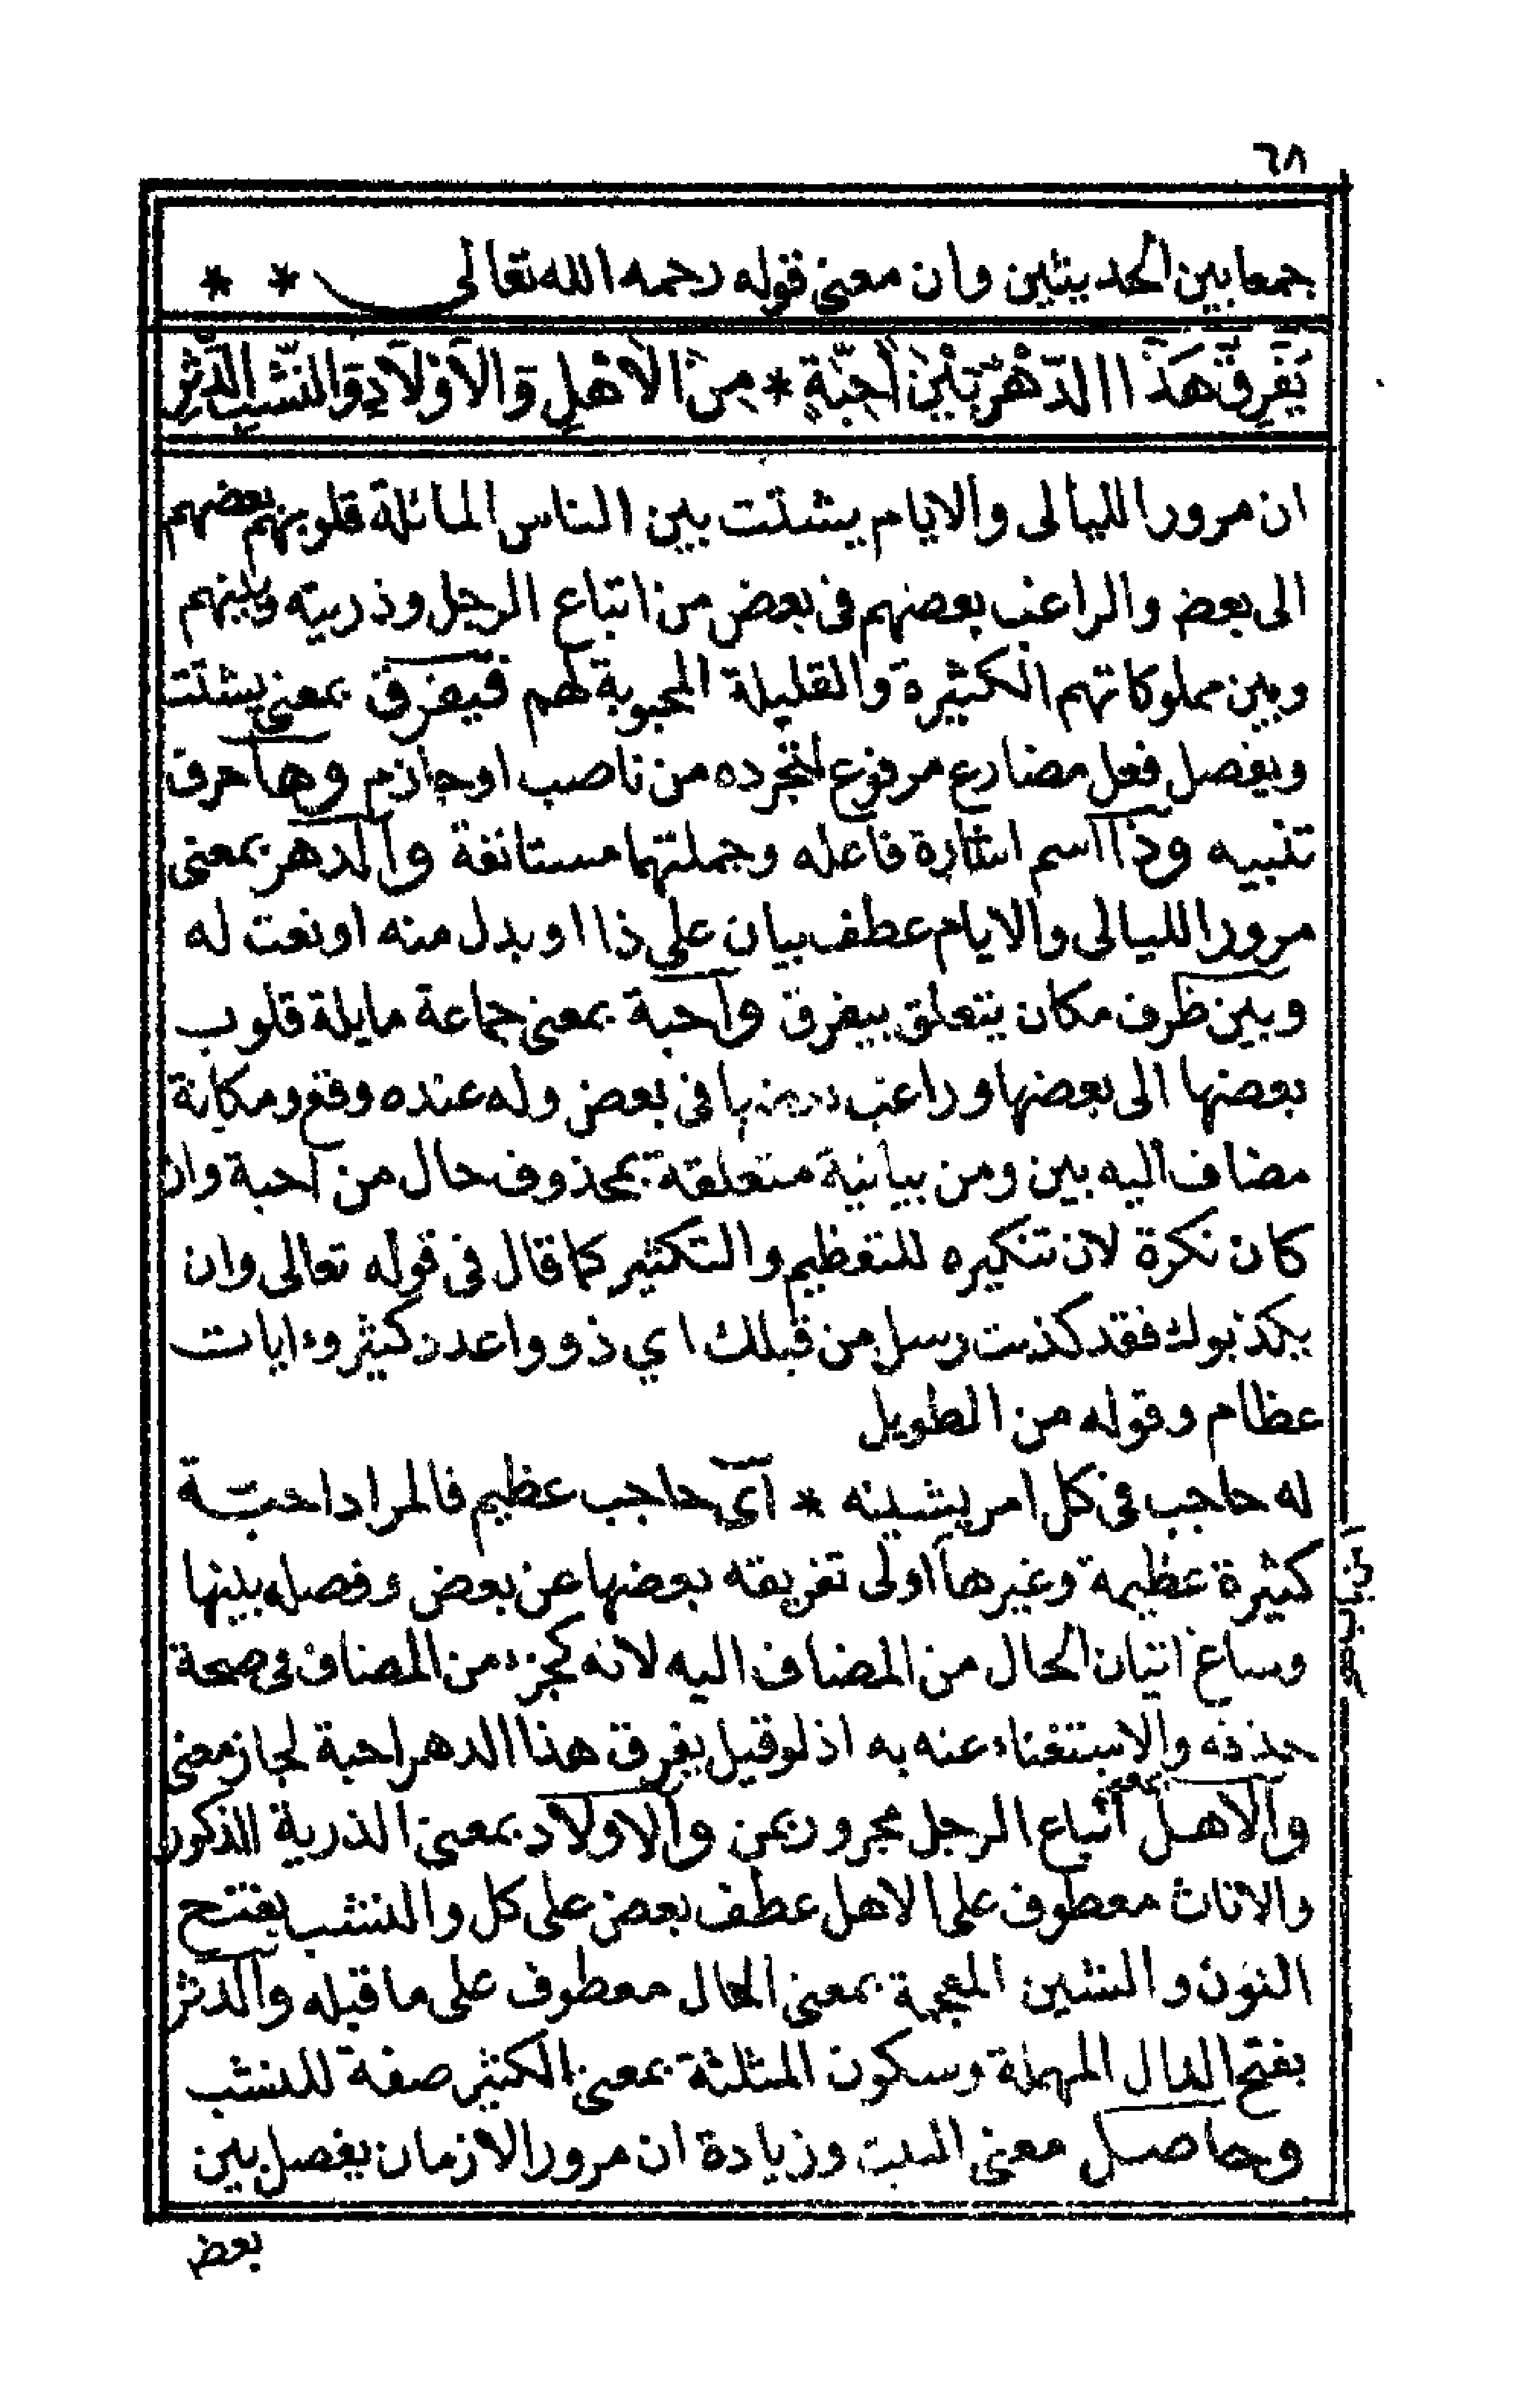 ٦٨
جمعا بين الحديثين وان معنى قوله رحمه الله تعالى * *
يُفَرِّقُ هَذَا الدَّهْرُ بَيْنَ أَحِبَّةٍ * مِنَ الْاَهْلِ وَالْاَوْلَادِ وَالنَّشَبِ الدَّثْرِ
ان مرور الليالى والايام يشتت بين الناس المائلة قلوبهم بعضهم
الى بعض والراغب بعضهم فى بعض من اتباع الرجل وذريته وبينهم
وبين مملوكاتهم الكثيرة والقليلة المحبوبة لهم فيفرق بمعنى يشتت
ويفصل فعل مضارع مرفوع لتجرده من ناصب او جازم وها حرف
تنبيه وذا اسم اشارة فاعله وجملتهما مستانفة والدهر بمعنى
مرور الليالى والايام عطف بيان على ذا او بدل منه او نعت له
وبين ظرف مكان يتعلق بيفرق واحبة بمعنى جماعة مايلة قلوب
بعضها الى بعضها وراغب بعضها فى بعض وله عنده وقع ومكانة
مضاف اليه بين ومن بيانية متعلقة بمحذوف حال من احبة وان
كان نكرة لان تنكيره للتعظيم والتكثير كما قال فى قوله تعالى وان
يكذبوك فقد كذبت رسل من قبلك اي ذووا عدد كثير وءايات
عظام وقوله من الطويل
له حاجب فى كل امر يشينه * اى حاجب عظيم فالمراد احبة
كثيرة عظيمة وغيرها اولى تفريقه بعضها عن بعض وفصله بينها
وساغ اتيان الحال من المضاف اليه لانه كجزء من المضاف فى صحة
حذفه والاستغناء عنه به اذ لو قيل يفرق هذا الدهر احبة لجاز معنى
والاهل بمعنى اتباع الرجل مجرور بمن والاولاد بمعنى الذرية الذكور
والاناث معطوف على الاهل عطف بعض على كل والنشب بفتح
النون والشين المعجمة بمعنى المال معطوف على ما قبله والدثر
بفتح الدال المهملة وسكون المثلثة بمعنى الكثير صفة للنشب
وحاصل معنى البيت وزيادة ان مرور الازمان يفصل بين
بعض